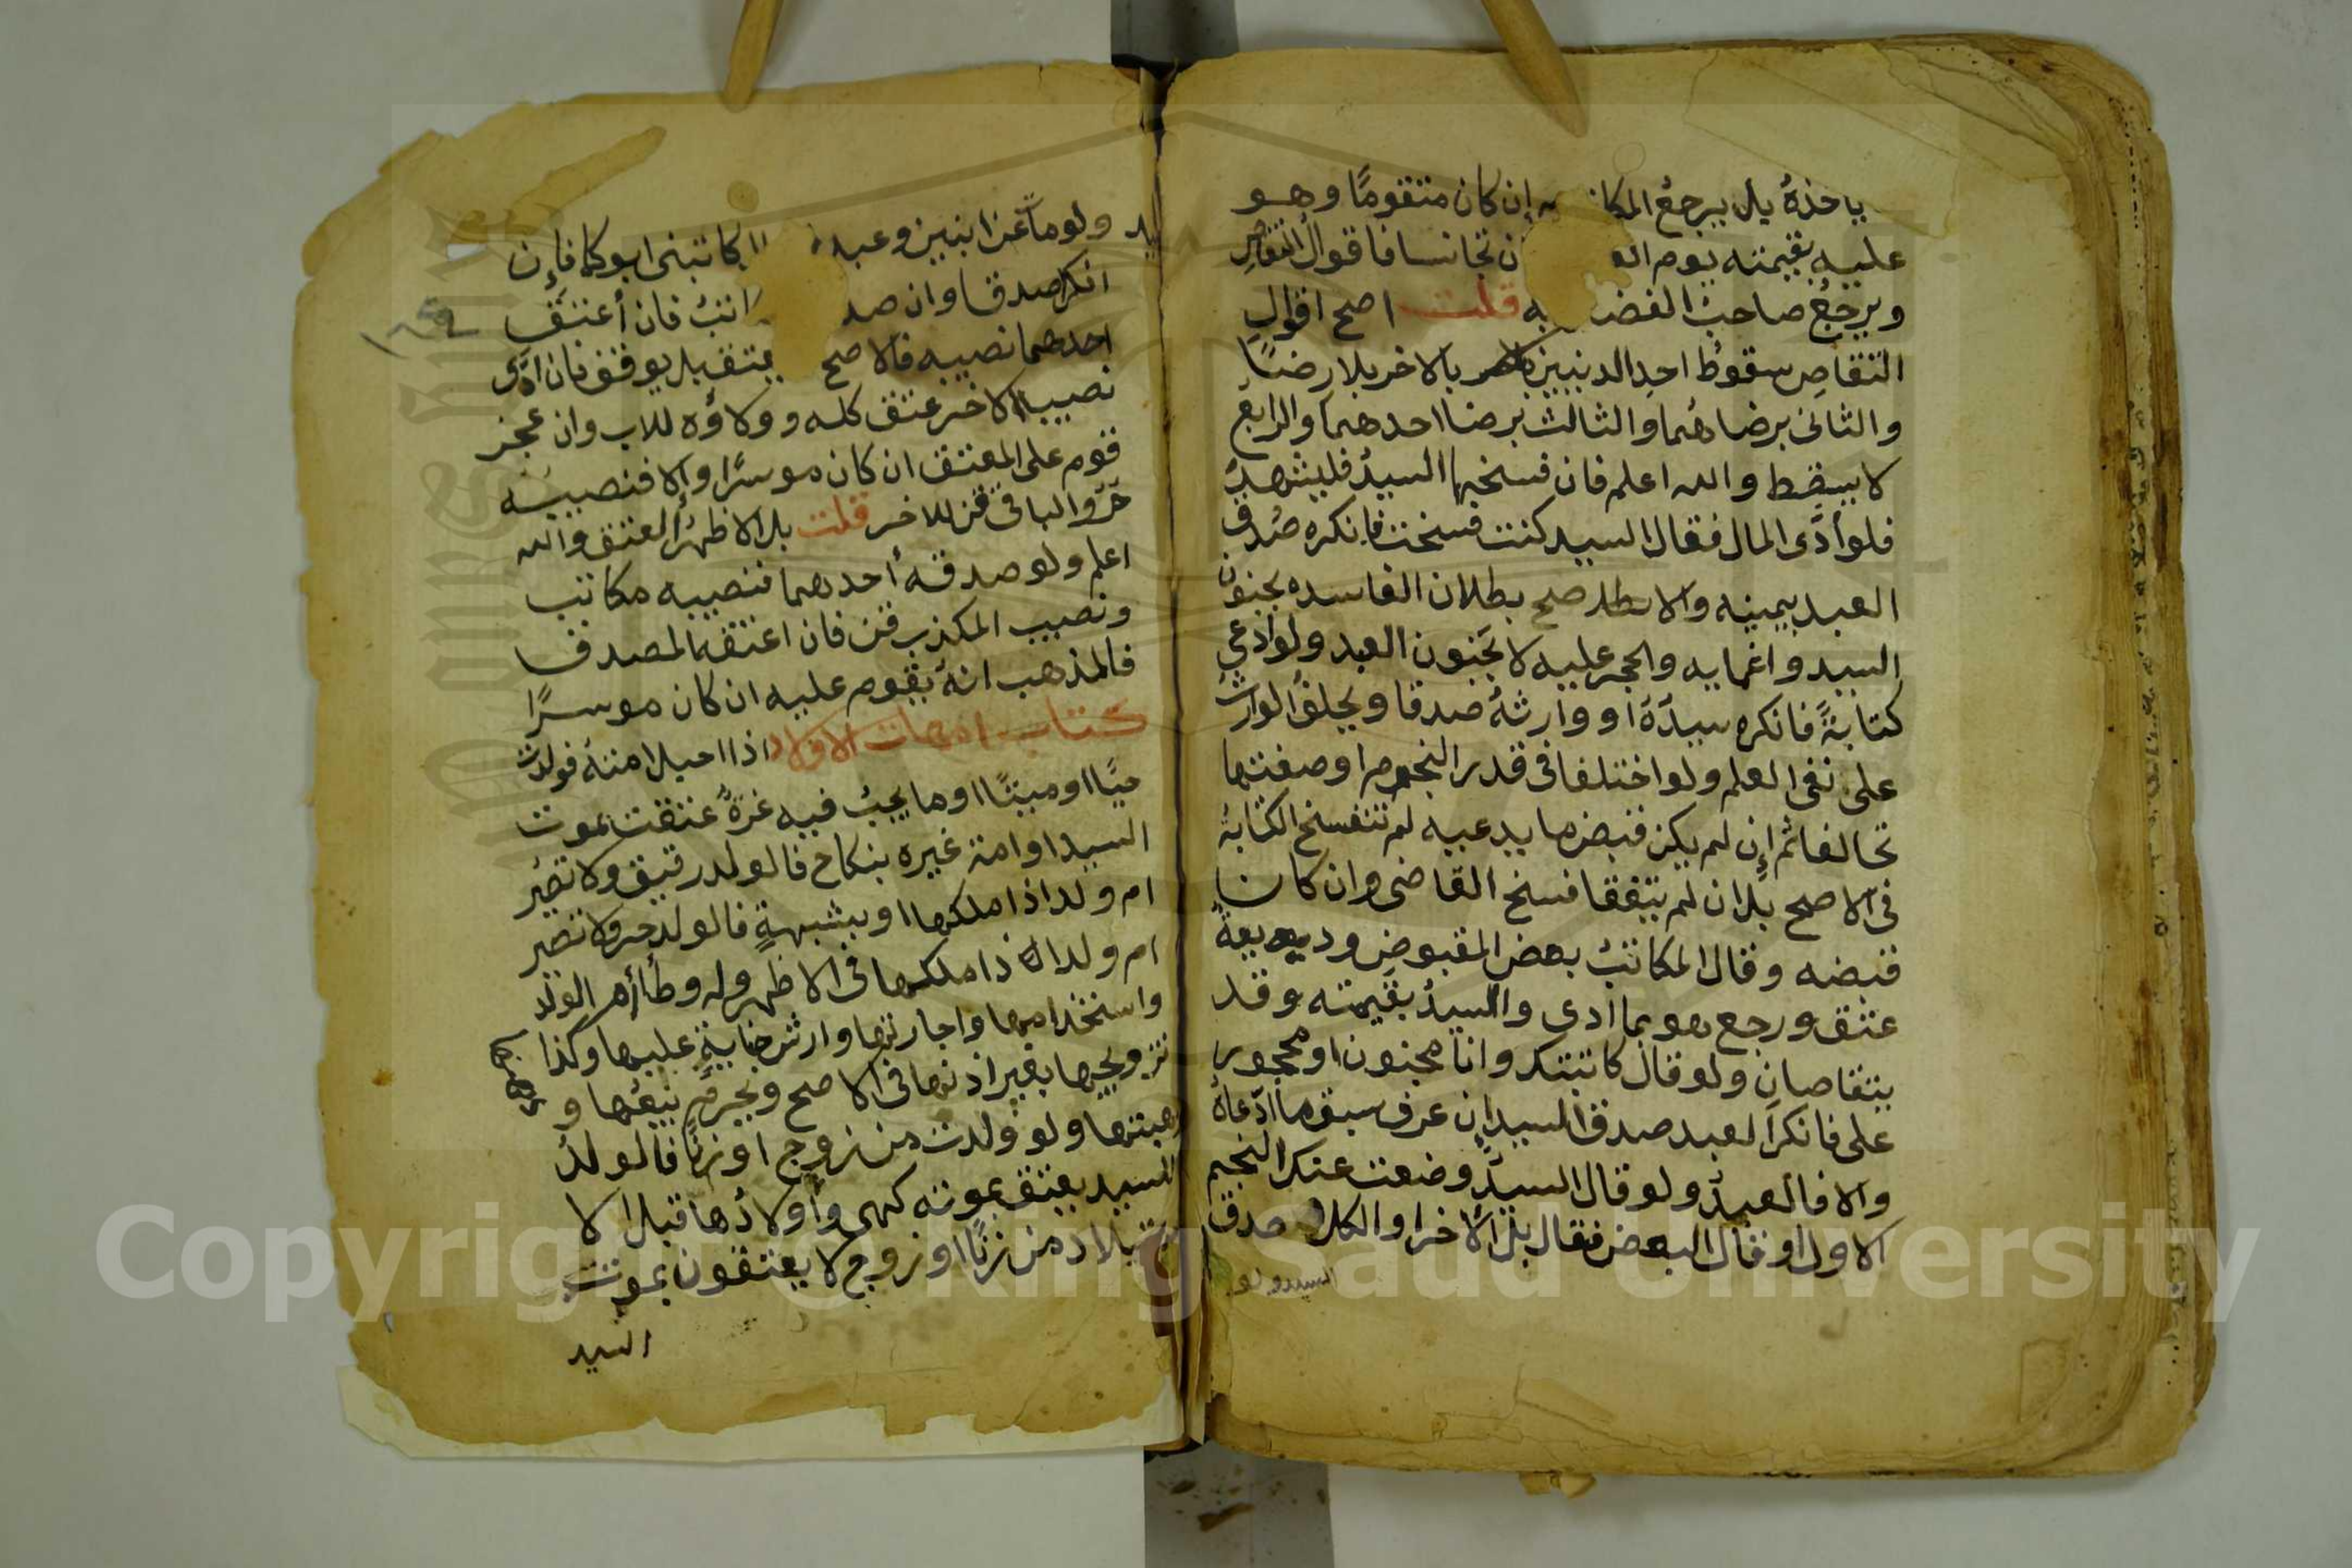 ياخذه بل يرجع المكا به إن كان متقومًا وهو
عليه بقيمته يوم الع ن تجانسا فاقوال التقاص
ويرجع صاحب الفض به قلت اصح اقوال
التقاص سقوط احد الدينين بالاخر بلا رضًا
والثاني برضاهما والثالث برضا احدهما والرابع
لا يسقط والله اعلم فان فسخها السيد فليشهد
فلو أدَّى المال فقال السيد كنت فسخت فانكره صُدق
العبد بيمينه والا صح بطلان الفاسده بجنون
السيد واغمايه والحجر عليه لا بجنون العبد ولو ادعى
كتابةً فانكره سيدَّهُ او وارثهُ صدقا ويحلف الوارث
على نفى العلم ولو اختلفا فى قدر النجوم او صفتها
تحالفا ثم إن لم يكن قبض ما يدعيه لم تنفسخ الكتابة
فى الاصح بل ان لم يتفقا فسخ القاضى وان كان
قبضه وقال المكاتب بعض المقبوض وديعة
عتق ورجع هو بما ادى والسيد بقيمته وقد
يتقاصان ولو قال كاتبتك وانا مجنون او محجور
على فانكر العبد صدق السيد إن عرف سبق ما ادَّعاهُ
والا فالعبدُ ولو قال السيدُ وضعت عنك النجم
الاول او قال البعض فقال بل الاخر او الكل صدق
السيد ولو
ولو مات عن ابنين وعبد كاتبنى ابوكما فإن
انكرا صدقا وان صد اتبُ فان أعتق
احدهما نصيبه فالاصح يعتق بل يوقف فان ادَّى
نصيب الاخر عتق كله وولاؤه للاب وان عجز
قوم على المعتق ان كان موسرًا وإلا فنصيبه
حرّ والباقى قن للاخر قلت بل الاظهرُ العتق والله
اعلم ولو صدقه أحدهما فنصيبه مكاتب
ونصيب المكذب قن فان اعتقه المصدق
فالمذهب انهُ يقوم عليه ان كان موسرًا
كتاب امهات الاولاد اذا احبل امتهُ فولدت
حيًّا او ميتًا او ما يجبُ فيه غرَةٌ عتقت بموت
السيد او امة غيره بنكاح فالولد رقيق ولا تصير
ام ولد اذا ملكها او بشبهةٍ فالولد حر ولا تصير
ام ولد اذا ملكها فى الاظهر وله وطأ أم الولد
واستخدامها واجارتها وارش جنايةٍ عليها وكذا
تزويجها بغير اذنها فى الاصح ويحرم بيعُها و
وهبتها ولو ولدت من زوج او زنًا فالولدُ
للسيد يعتق بموته كهى وأولادُها قبل الا
ستيلاد من زنًا او زوج لا يعتقون بموت
السيد